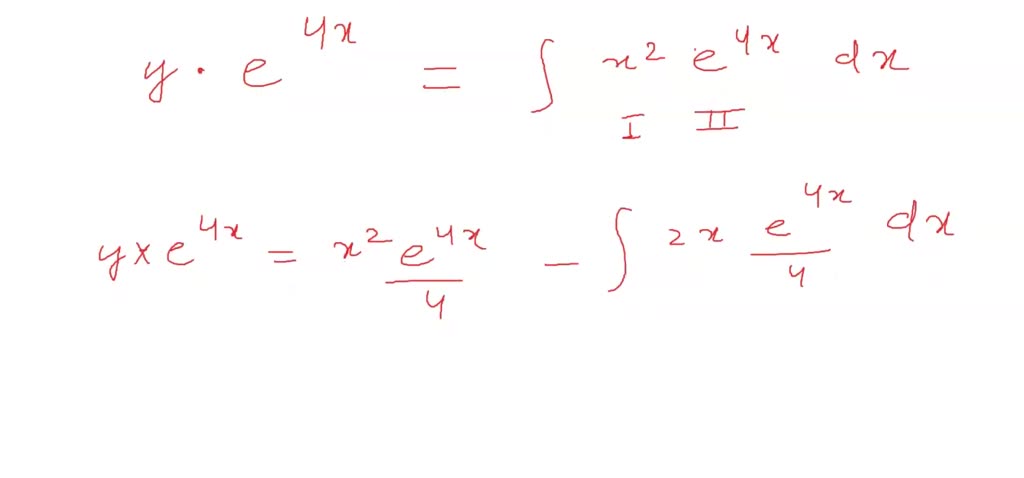 y · e^{4x} = ∫ x² e^{4x} dx
I II
y × e^{4x} = x² e^{4x}/4 - ∫ 2x e^{4x}/4 dx